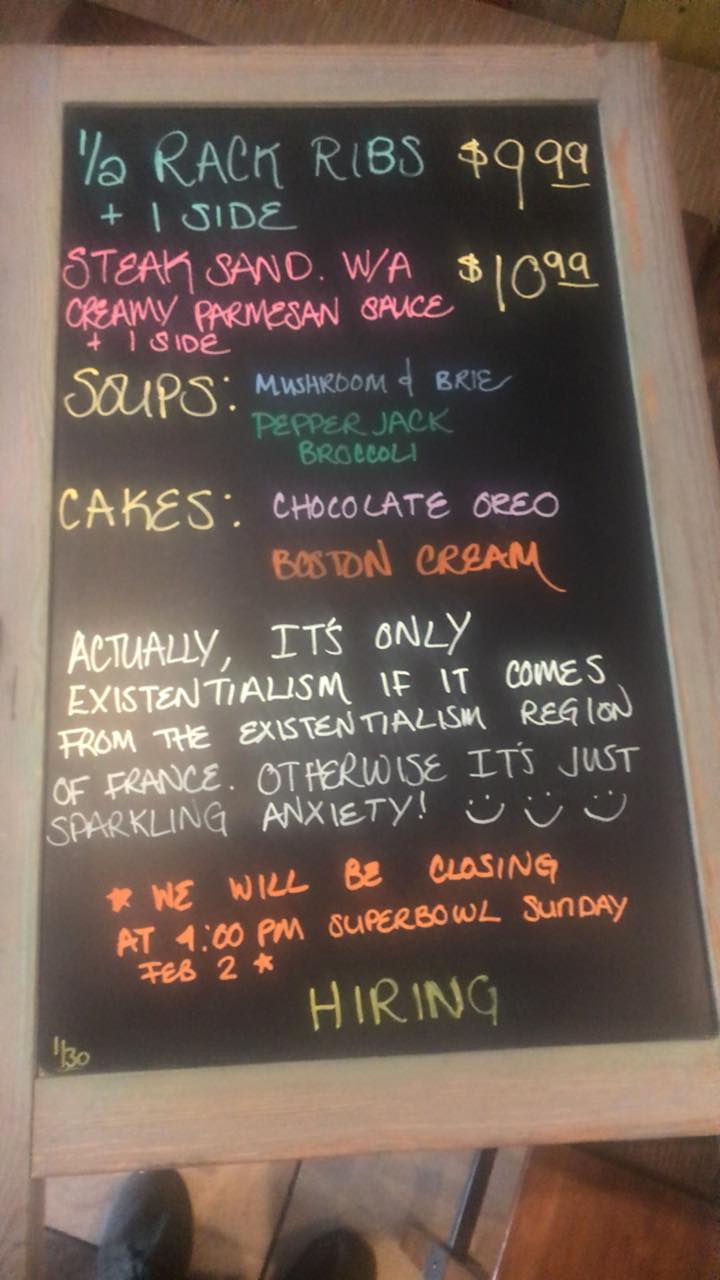 1/2 RACK RIBS $9.99
+ 1 SIDE
STEAK SAND. W/A $10.99
CREAMY PARMESAN SAUCE
+ 1 SIDE
SOUPS: MUSHROOM & BRIE
PEPPER JACK
BROCCOLI
CAKES: CHOCOLATE OREO
BOSTON CREAM
ACTUALLY, IT'S ONLY
EXISTENTIALISM IF IT COMES
FROM THE EXISTENTIALISM REGION
OF FRANCE. OTHERWISE IT'S JUST
SPARKLING ANXIETY!
* WE WILL BE CLOSING
AT 4:00 PM SUPERBOWL SUNDAY
FEB 2 *
HIRING
1/30